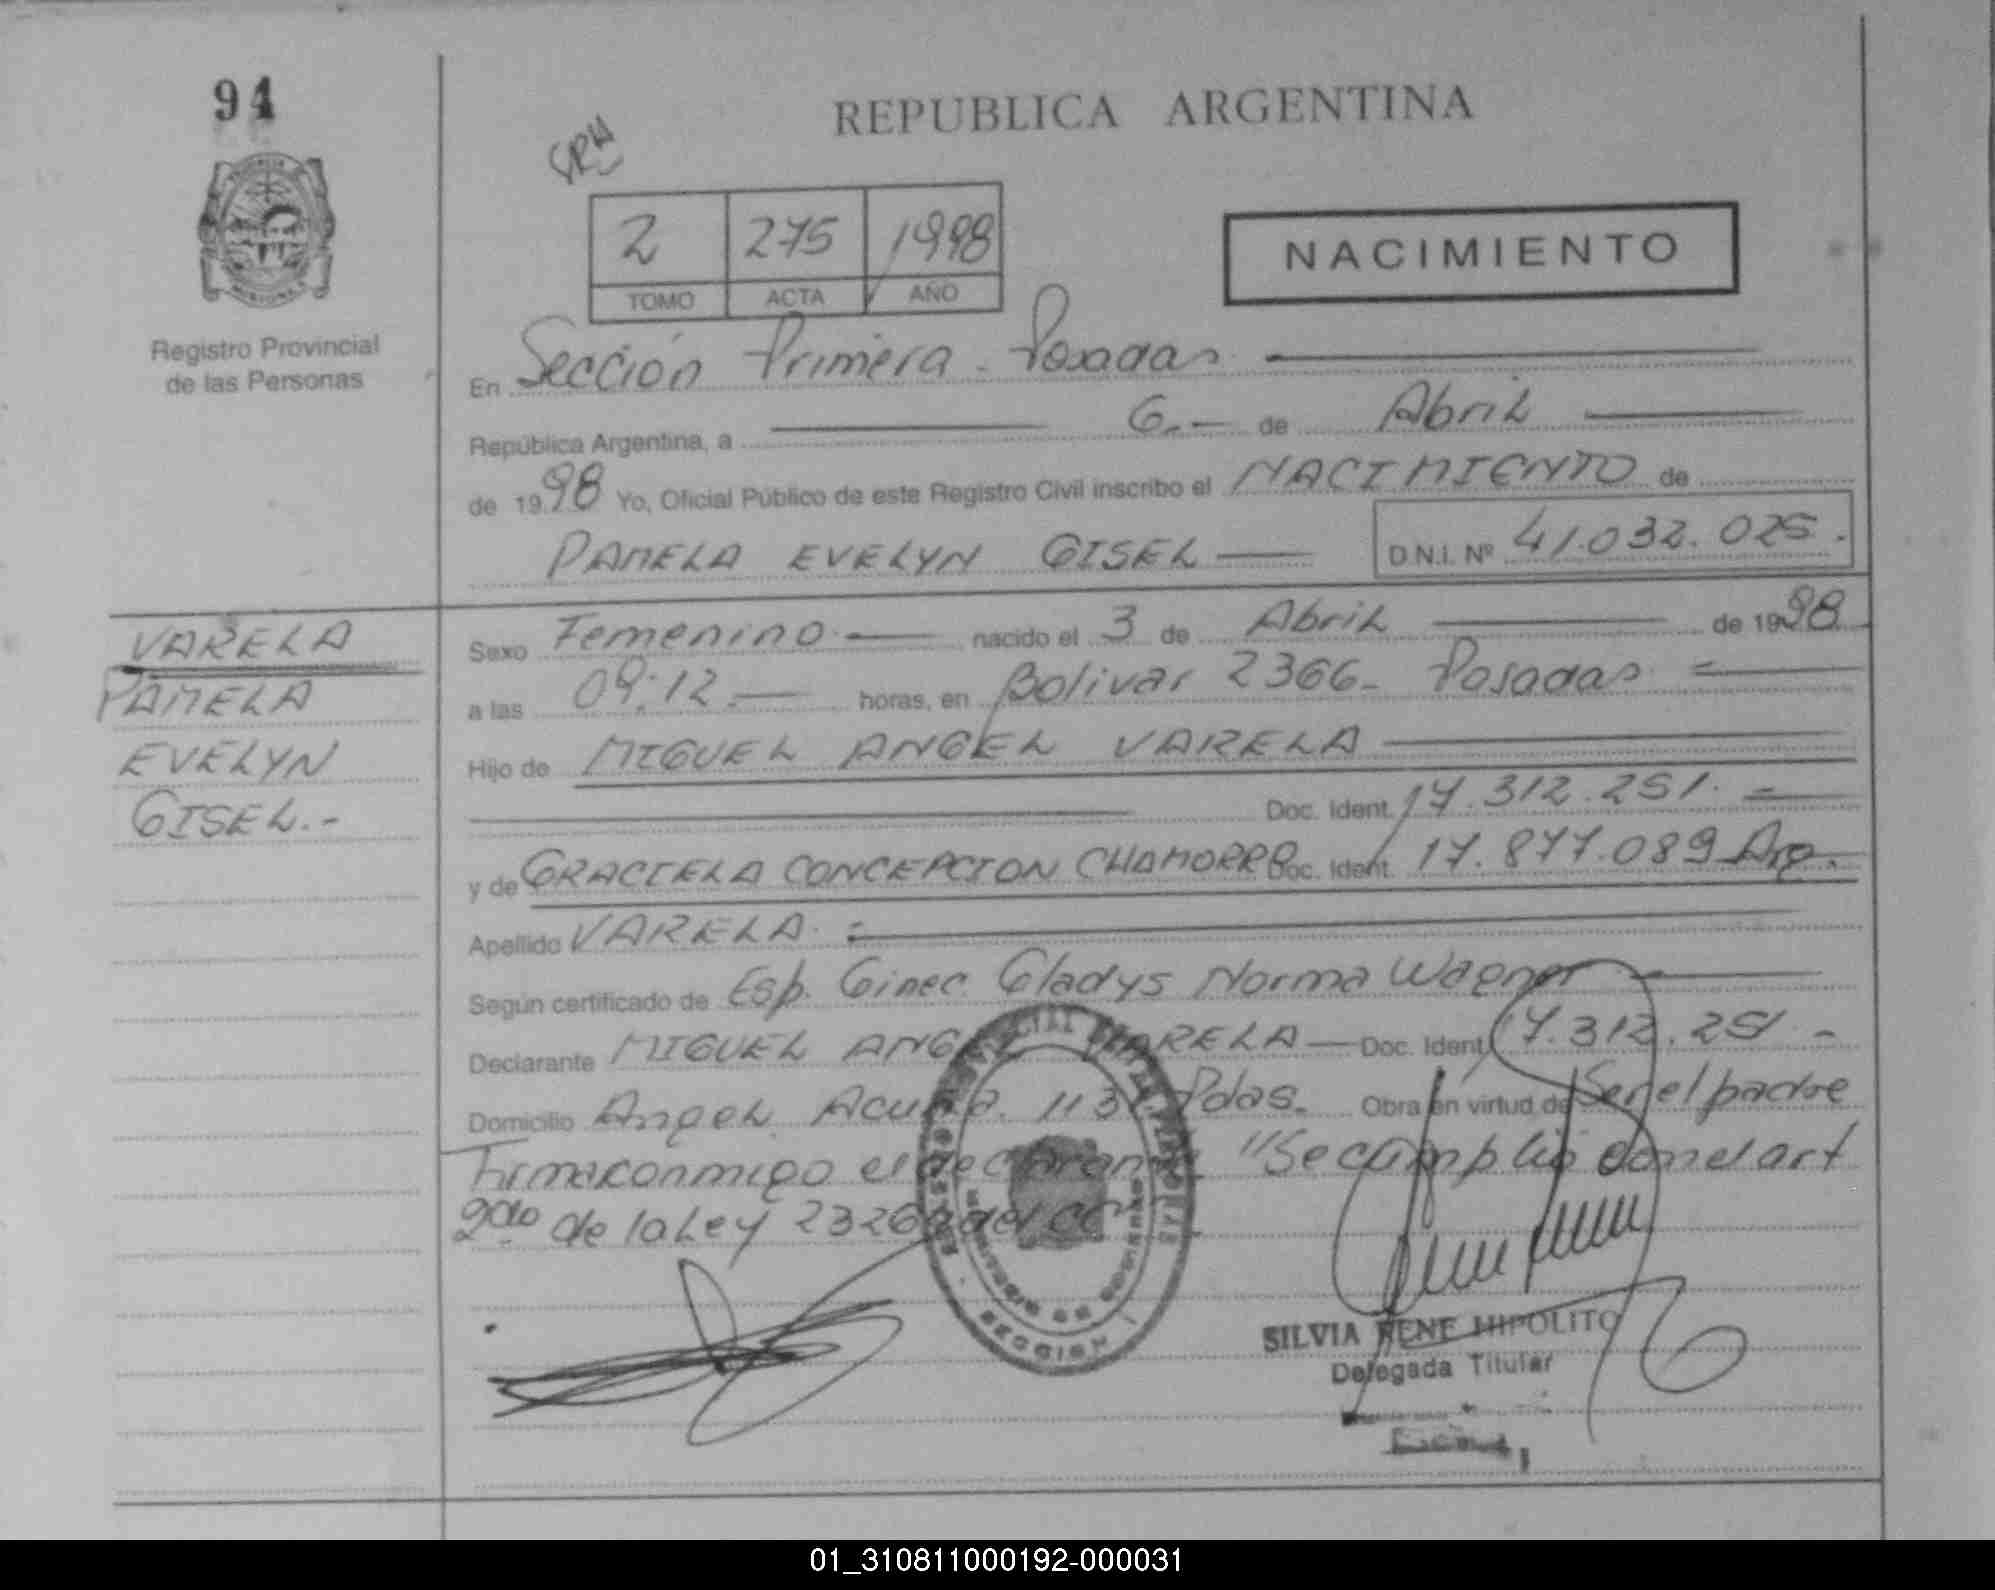 94
REPUBLICA ARGENTINA
2 275 1998
TOMO ACTA AÑO
NACIMIENTO
Registro Provincial
de las Personas
En Sección Primera - Posadas
República Argentina, a 6.- de Abril
de 1998 Yo, Oficial Público de este Registro Civil inscribo el NACIMIENTO de
PAMELA EVELYN GISEL D.N.I. Nº 41.032.025.
VARELA
PAMELA
EVELYN
GISEL.-
Sexo Femenino nacido el 3 de Abril de 1998
a las 09:12.- horas, en Bolivar 2366- Posadas
Hijo de MIGUEL ANGEL VARELA
Doc. Ident. 17.312.251.-
y de GRACIELA CONCEPCION CHAMORRO Doc. Ident. 17.877.089 Arg.
Apellido VARELA.
Según certificado de Esp. Ginec Gladys Norma Wagner
Declarante MIGUEL ANGEL VARELA - Doc. Ident. 17.312.251.-
Domicilio Angel Acuña 113 Pdas. Obra en virtud de Ser el padre
Firma conmigo el declarante "Se cumplió con el art
2do de la Ley 2326 del CC
SILVIA RENE HIPOLITO
Delegada Titular
01_310811000192-000031